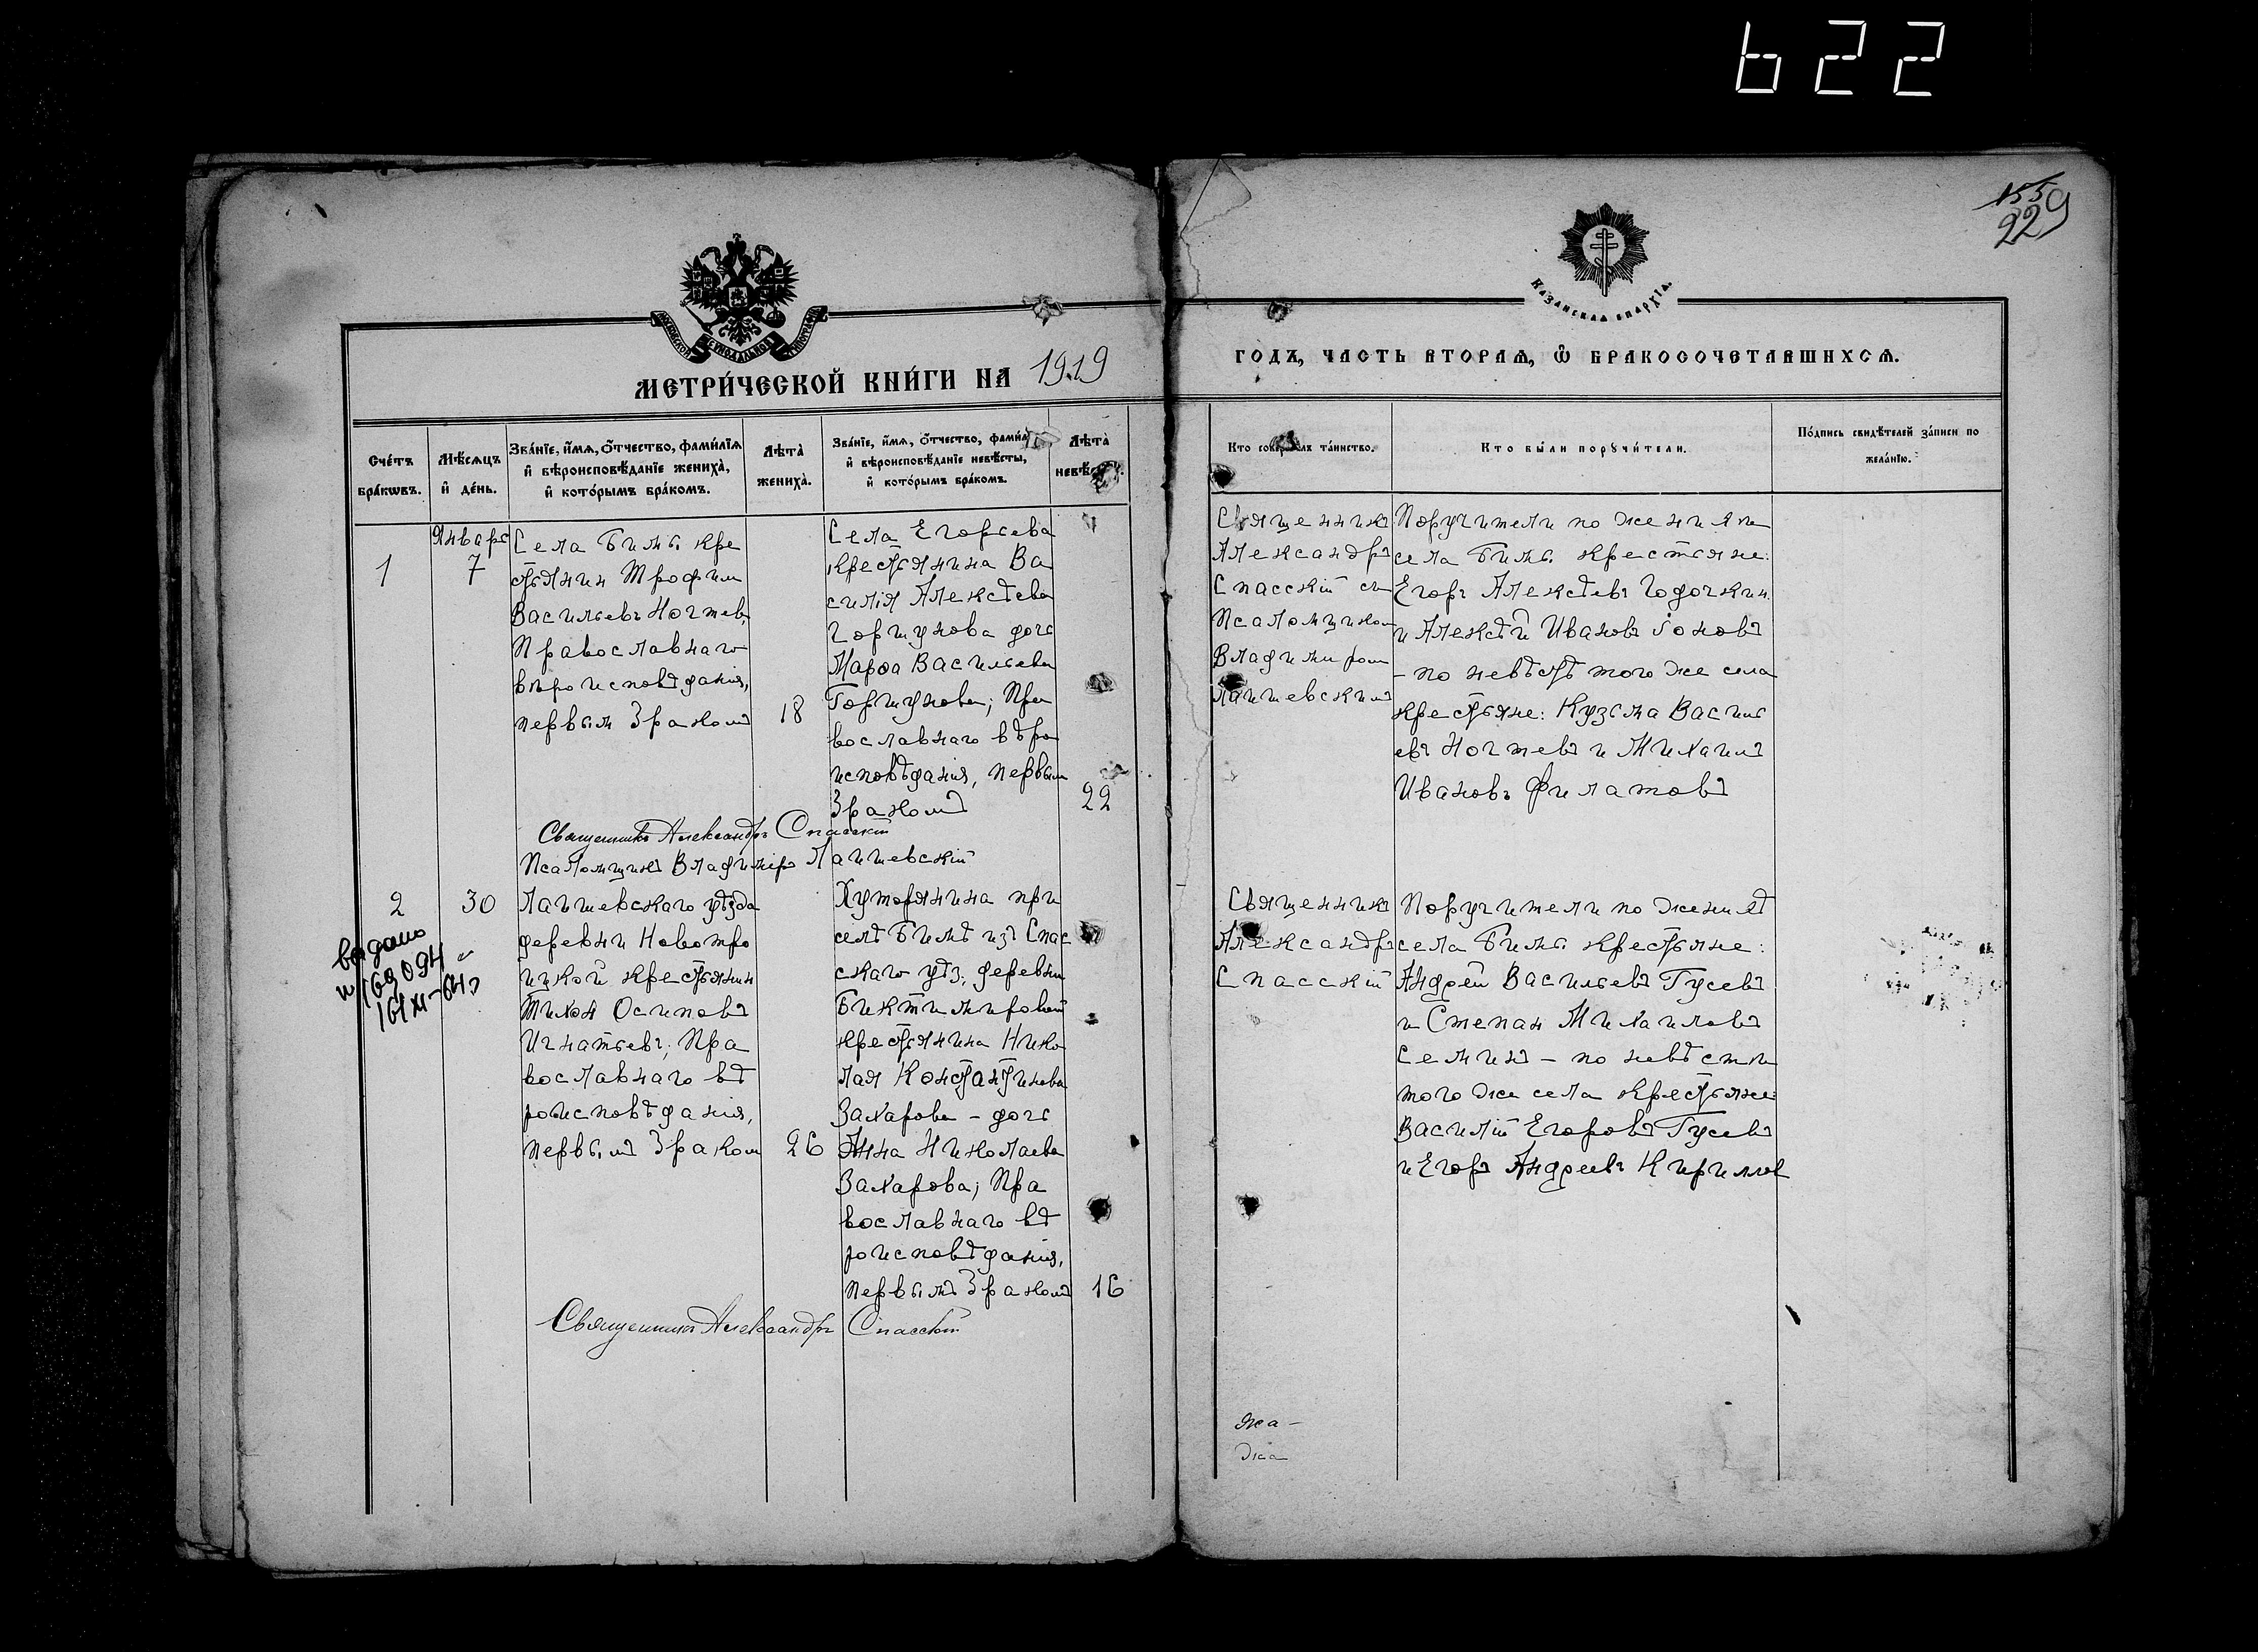 622
155
229
МОСКОВСКОЙ СѴНОДАЛЬНОЙ ТИПОГРАФІИ
КАЗАНСКАѦ ЕПАРХІѦ.
МЕТРИ́ЧЕСКОЙ КНИ́ГИ НА 1919
ГОДЪ, ЧАСТЬ ВТОРАѦ, Ѽ БРАКОСОЧЕТАВШИХСѦ.
Сче́тъ бра́кѡвъ.
Мѣ́сѧцъ и҆ де́нь.
Зва́нїе, и҆́мѧ, ѻ҆́тчество, фами́лїѧ
и҆ вѣроисповѣ́данїе жениха̀,
и҆ кото́рымъ бра́комъ.
Лѣта̀ жениха̀.
Зва́нїе, и҆́мѧ, ѻ҆́тчество, фами
и҆ вѣроисповѣ́данїе невѣ́сты,
и҆ кото́рымъ бра́комъ.
Лѣта̀
невѣ
Кто соверш лъ та́инство.
Кто бы́ли порꙋчи́тели.
По́дпись свидѣ́телей за́писи по
жела́нїю.
1
Январь
7
Села Бимь. кре
стьянин Трофим
Васильевъ Ногтев,
Православнаго
вѣроисповѣданія,
первым браком
18
Села Егорьева
крестьянина Ва
силія Алексѣева
Горшунова дочь
Марѳа Васильева
Горшунова; Пра
вославнаго вѣро
исповѣданія, первым
браком
22
Священникъ
Александръ
Спасскій съ
Псаломщиком
Владимиром
Лаишевским
Поручители по женихѣ
села Бимь. крестьяне:
Егоръ Алексѣевъ Годочкин
и Алексѣй Ивановъ Іоновъ
- по невѣстѣ того же села
крестьяне: Кузьма Василь
евъ Ногтевъ и Михаилъ
Ивановъ Филатовъ
Священникъ Александръ Спасскій
Псаломщикъ Владимiръ Лаишевскій
2
30
выдано
н 169094
16/XI-64г
Лаишевскаго уѣзда
деревни Новотро
ицкой крестьянин
Тихон Осиповъ
Игнатьевъ; Пра
вославнаго вѣ
роисповѣданія,
первымъ браком
26
Хуторянина при
селѣ Бимѣ изъ Спас
скаго уѣз. деревни
Биктимировой
крестьянина Нико
лая Константинова
Захарова - дочь
Анна Николаева
Захарова; Пра
вославнаго вѣ
роисповѣданія,
первымъ браком
16
Священникъ
Александръ
Спасскій
Поручители по женихѣ
села Бимь. крестьяне:
Андрей Васильевъ Гусевъ
и Степан Михаиловъ
Семинъ - по невѣсти
того же села крестьяне:
Василій Егоровъ Гусевъ
и Егоръ Андреевъ Кирилловъ
Священникъ Александръ Спасскій